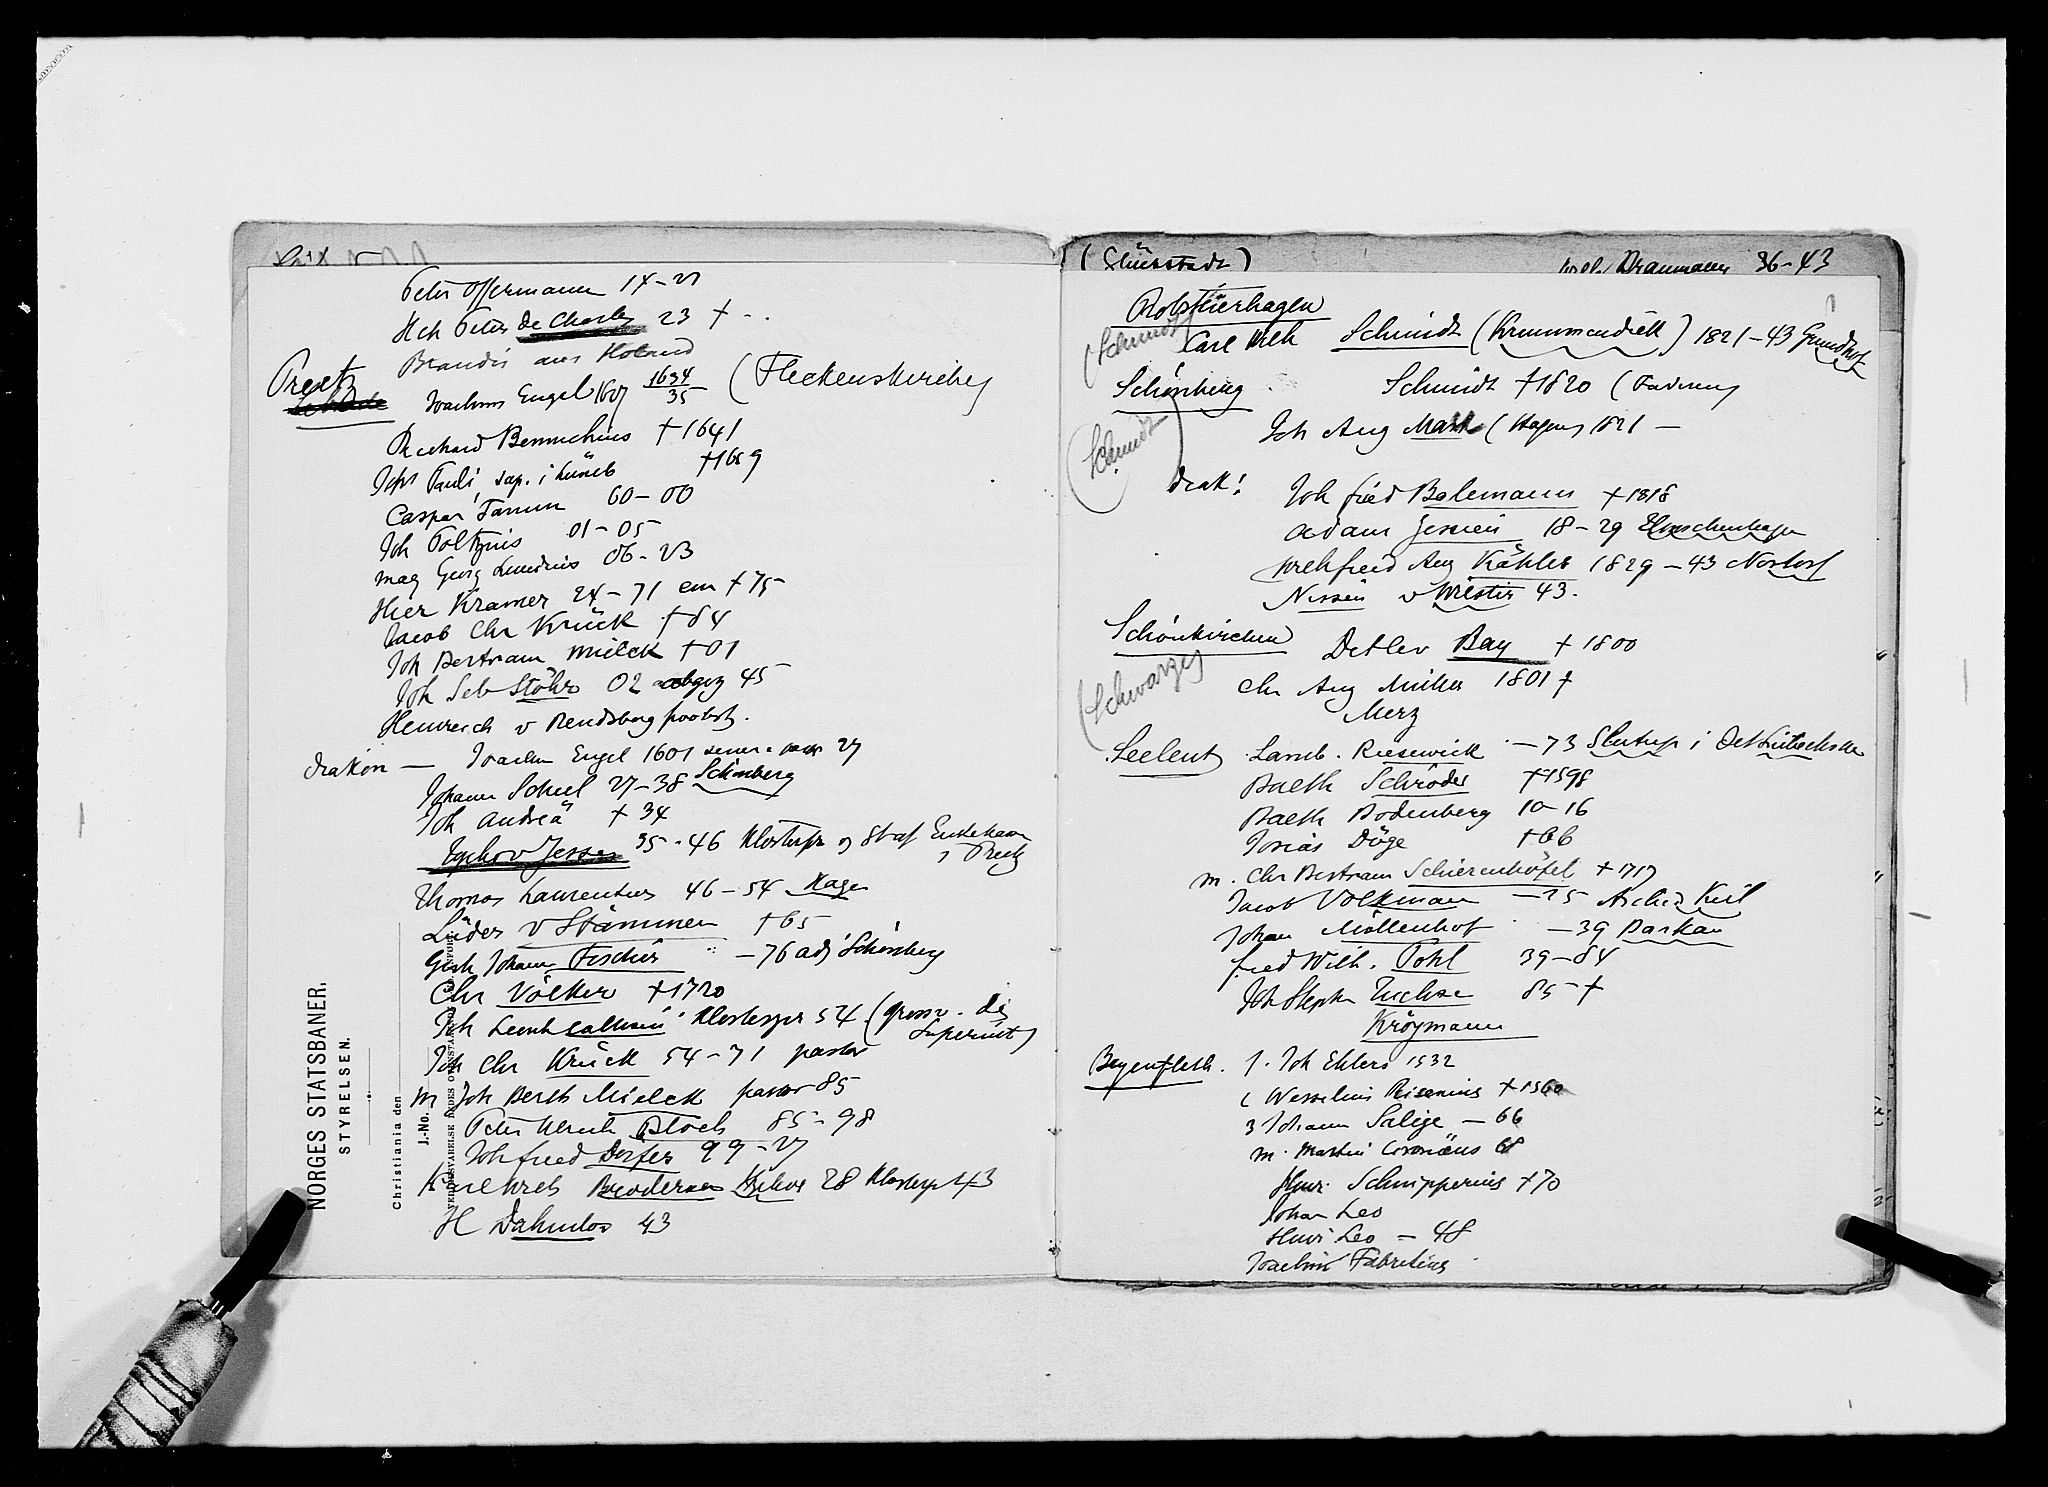 Peter Offermann 14-21
Hch Peter de Charles 23 †
Brandis aus Holand
Preetz Joachim Engel 1607 1634/35 (Fleckenskirche)
Richard Bennichius † 1641
Johs Pauli sap. i Lüneb † 1659
Caspar Tamm 60-00
Joh Poltzius 01-05
mag Georg 06-23
Hier Kramer 24-71 em † 75
Jacob Chr Krück † 84
Joh Bertram Mielck † 01
Joh Seb Stöhr 02 abgeg 45
Heinrich v Rendsborg probst.
diakon — Joachim Engel 1601 27
Johann Scheel 27-38 Schönberg
Joh Andreä † 34
Tycho v Jessen 35-46 Klosterpr og Stad
i Preetz
Thomas Laurentius 46-54 Hagen
Lüder v Stammen † 65
Gerh Johann Fischer -76 adj Schönberg
Chr Völker † 1720
Joh Leonh Callisen Klosterpr 54 (grossv. de
Superint)
Joh Chr Krück 54-71 pastor
m Joh Berth Mielck pastor 85
Peter Ulrich Bloch 85-98
Joh fried Dörfer 99-27
Karl Brodersen 28 Klosterpr 43
H Dahmlos 43
NORGES STATSBANER.
STYRELSEN.
Christiania den
J.-No.
(Glückstadt) Braumann 36-43
Probsteierhagen
(Schmidt) Carl Wilh Schmidt (Krummendiek) 1821-43 Grundhof
Schönberg Schmidt † 1820
(Schmidt) Joh Aug Mau (Hagen) 1821 —
diak: Joh fried Balemann † 1818
Adam Jessien 18-29 Elmschenhagen
Aug Kähler 1829-43 Nortorf
Nissen v Wilster 43.
Schönkirchen Detlev Bay † 1800
(Schwarz) Chr Aug Müller 1801 †
Merz
Seelent Lamb. Riesewick -73
Balth Schröder † 1598
Balth Bodenberg 10-16
Josias Döge † 66
m. Chr Bertram Schierenhöfel † 1717
Jacob Volkman -25 Archid Kiel
Johan Möllenhof -39 Barkau
fried Wilh. Pohl 39-84
Joh Steph Tuchse 85-†
Kröymann
Beyenfleth. 1. Joh Ehlers 1532
Wesselius † 1560
3 Johann Salige — 66
m. Martin Coronäus 68
Henr. Schnipperius † 70
Johan Leo
Henr Leo — 48
Joachim Fabricius